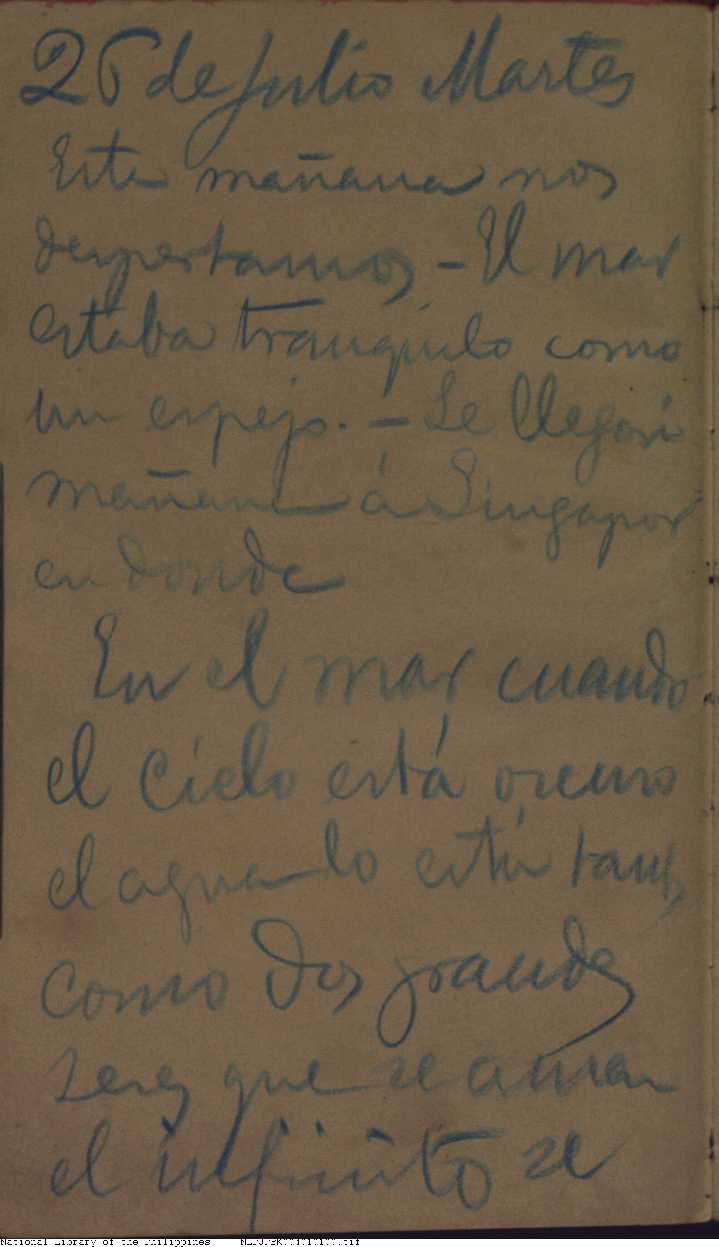 26 de Julio Martes
Esta mañana nos
despertamos – El mar
estaba tranquilo como
un espejo. – Se llegará
mañana á Singapor
en donde
En el mar cuando
el cielo está oscuro
el agua lo está tamb
como dos grandes
seres que se aman
el infinito se
National Library of the Philippines